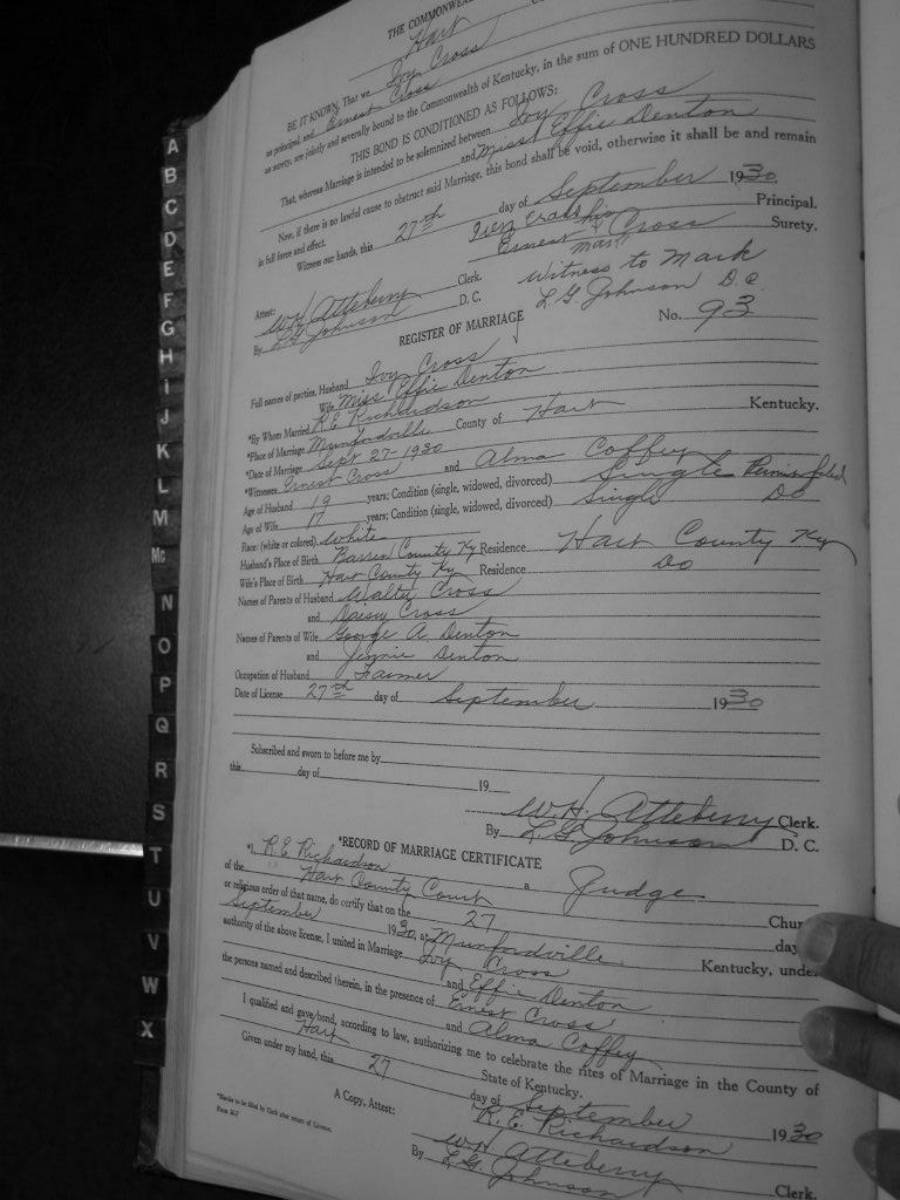 THE COMMONWEA
Hart
Ivy Cross
BE IT KNOWN, That we
as principal, and Ernest Cross
as surety, are jointly and severally bound to the Commonwealth of Kentucky, in the sum of ONE HUNDRED DOLLARS
THIS BOND IS CONDITIONED AS FOLLOWS:
That, whereas Marriage is intended to be solemnized between Ivy Cross
and Miss Effie Denton
Now, if there is no lawful cause to obstruct said Marriage, this bond shall be void, otherwise it shall be and remain
in full force and effect.
Witness our hands, this 27th day of September 1930.
Ivy Cross his Principal.
Ernest Cross Surety.
mark
Attest: Witness to Mark
W.H. Atteberry Clerk. L.G. Johnson D.C.
By L.G. Johnson D. C.
REGISTER OF MARRIAGE No. 93
Full names of parties, Husband Ivy Cross
Wife Miss Effie Denton
*By Whom Married R.E. Richardson
*Place of Marriage Munfordville County of Hart Kentucky.
*Date of Marriage Sept 27-1930
*Witnesses Ernest Cross and Alma Coffey
Age of Husband 19 years; Condition (single, widowed, divorced) Single
Age of Wife 17 years; Condition (single, widowed, divorced) Single Do
Race: (white or colored) White
Husband's Place of Birth Barren County Ky Residence Hart County Ky
Wife's Place of Birth Hart County Ky Residence Do
Names of Parents of Husband Walter Cross
and Daisy Cross
Names of Parents of Wife George A. Denton
and Jennie Denton
Occupation of Husband Farmer
Date of License 27th day of September 1930
Subscribed and sworn to before me by
this day of 19
W.H. Atteberry Clerk.
By L.G. Johnson D. C.
*RECORD OF MARRIAGE CERTIFICATE
*I, R.E. Richardson a Judge
of the Hart County Court Chur
or religious order of that name, do certify that on the 27 day
September 1930, at Munfordville Kentucky, unde
authority of the above license, I united in Marriage Ivy Cross
and Effie Denton
the persons named and described therein, in the presence of Ernest Cross
and Alma Coffey
I qualified and gave bond, according to law, authorizing me to celebrate the rites of Marriage in the County of
Hart State of Kentucky.
Given under my hand, this 27 day of September 1930
R.E. Richardson
A Copy, Attest: W.H. Atteberry Clerk.
By L.G. Johnson
A
B
C
D
E
F
G
H
I
J
K
L
M
Mc
N
O
P
Q
R
S
T
U
V
W
X